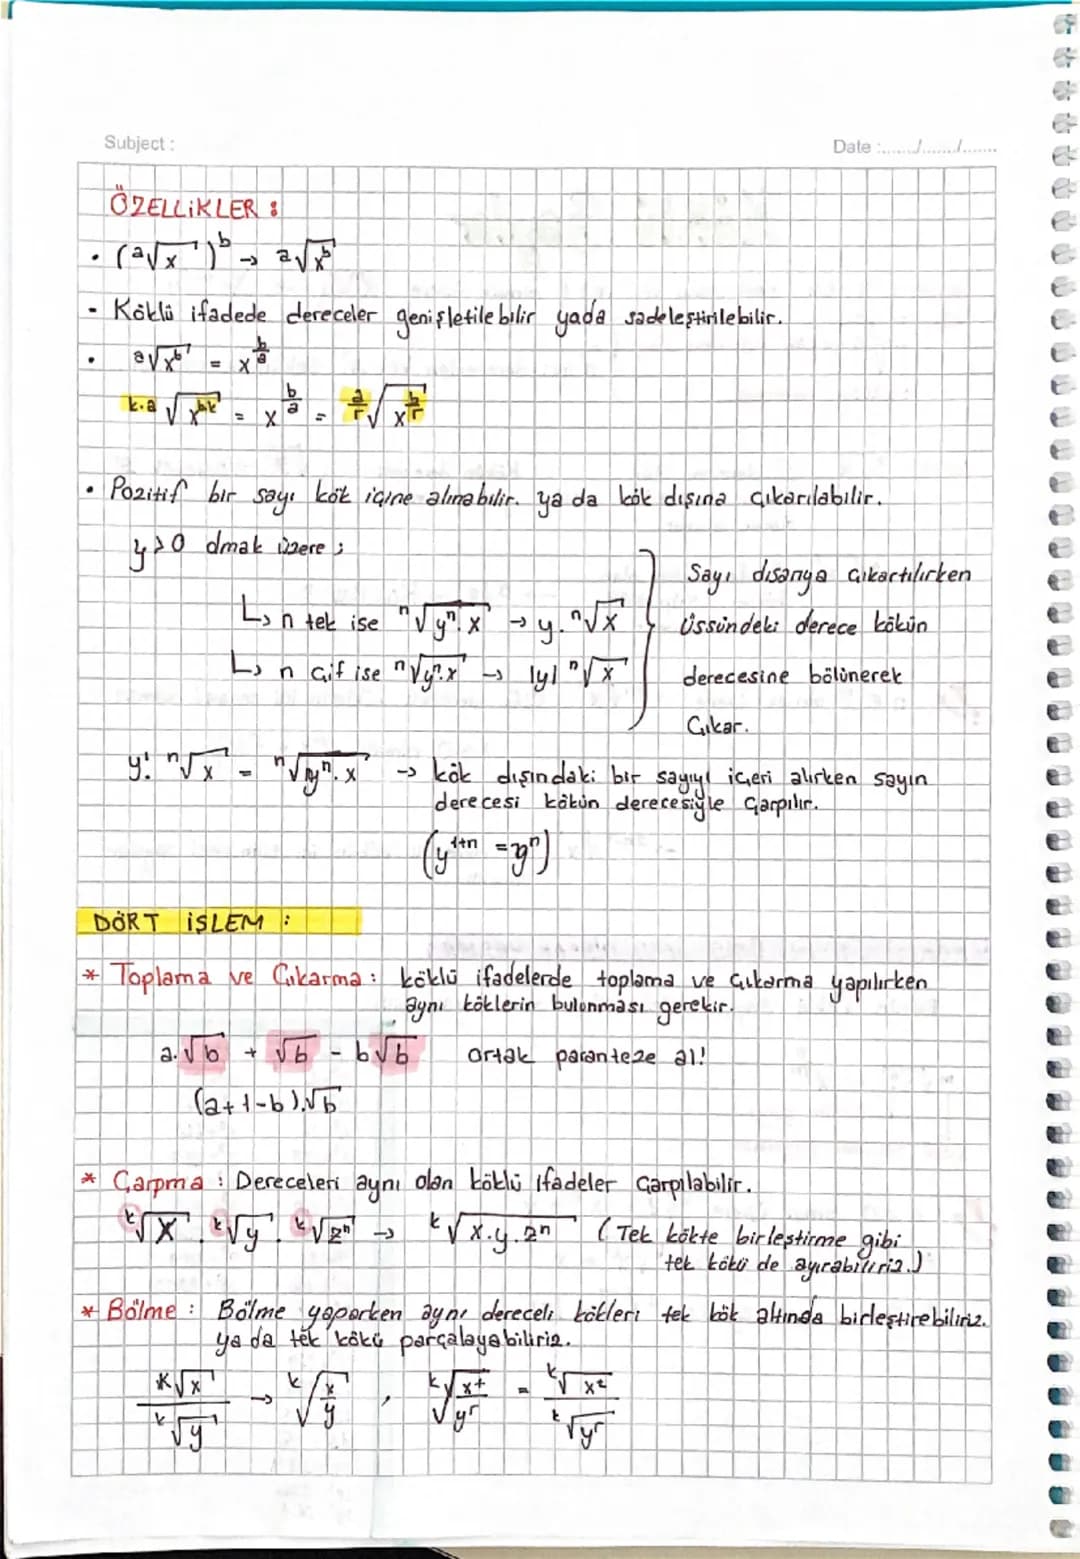 Subject :
Date :....../....../.......
ÖZELLİKLER :
• (ᵃ√x)ᵇ → ᵃ√xᵇ
- Köklü ifadede dereceler genişletilebilir yada sadeleştirilebilir.
• ᵃ√xᵇ = x^(b/a)
k.a√x^(bk) = x^(b/a) = (a/r)√x^(b/r)
• Pozitif bir sayı kök içine alınabilir. ya da kök dışına çıkarılabilir.
y>0 olmak üzere ;
↳ n tek ise ⁿ√yⁿ.x → y.ⁿ√x
↳ n çif ise ⁿ√yⁿ.x → |y| ⁿ√x
Sayı dışarıya çıkartılırken
üssündeki derece kökün
derecesine bölünerek
Çıkar.
y¹.ⁿ√x = ⁿ√yⁿ.x → kök dışındaki bir sayıyı içeri alırken sayın
derecesi kökün derecesiyle çarpılır.
(y^(1+n) = yⁿ)
DÖRT İŞLEM :
* Toplama ve Çıkarma : köklü ifadelerde toplama ve çıkarma yapılırken
aynı köklerin bulunması gerekir.
a.√b + √b - b√b ortak paranteze al!
(a+1-b).√b
* Çarpma : Dereceleri aynı olan köklü ifadeler çarpılabilir.
ᵏ√x . ᵏ√y . ᵏ√zⁿ → ᵏ√x.y.zⁿ (Tek kökte birleştirme gibi
tek kökü de ayırabiliriz.)
* Bölme : Bölme yaparken aynı dereceli kökleri tek kök altında birleştirebiliriz.
ya da tek kökü parçalayabiliriz.
ᵏ√x / ᵏ√y → ᵏ√(x/y) , ᵏ√(xᵗ/yʳ) = ᵏ√xᵗ / ᵏ√yʳ